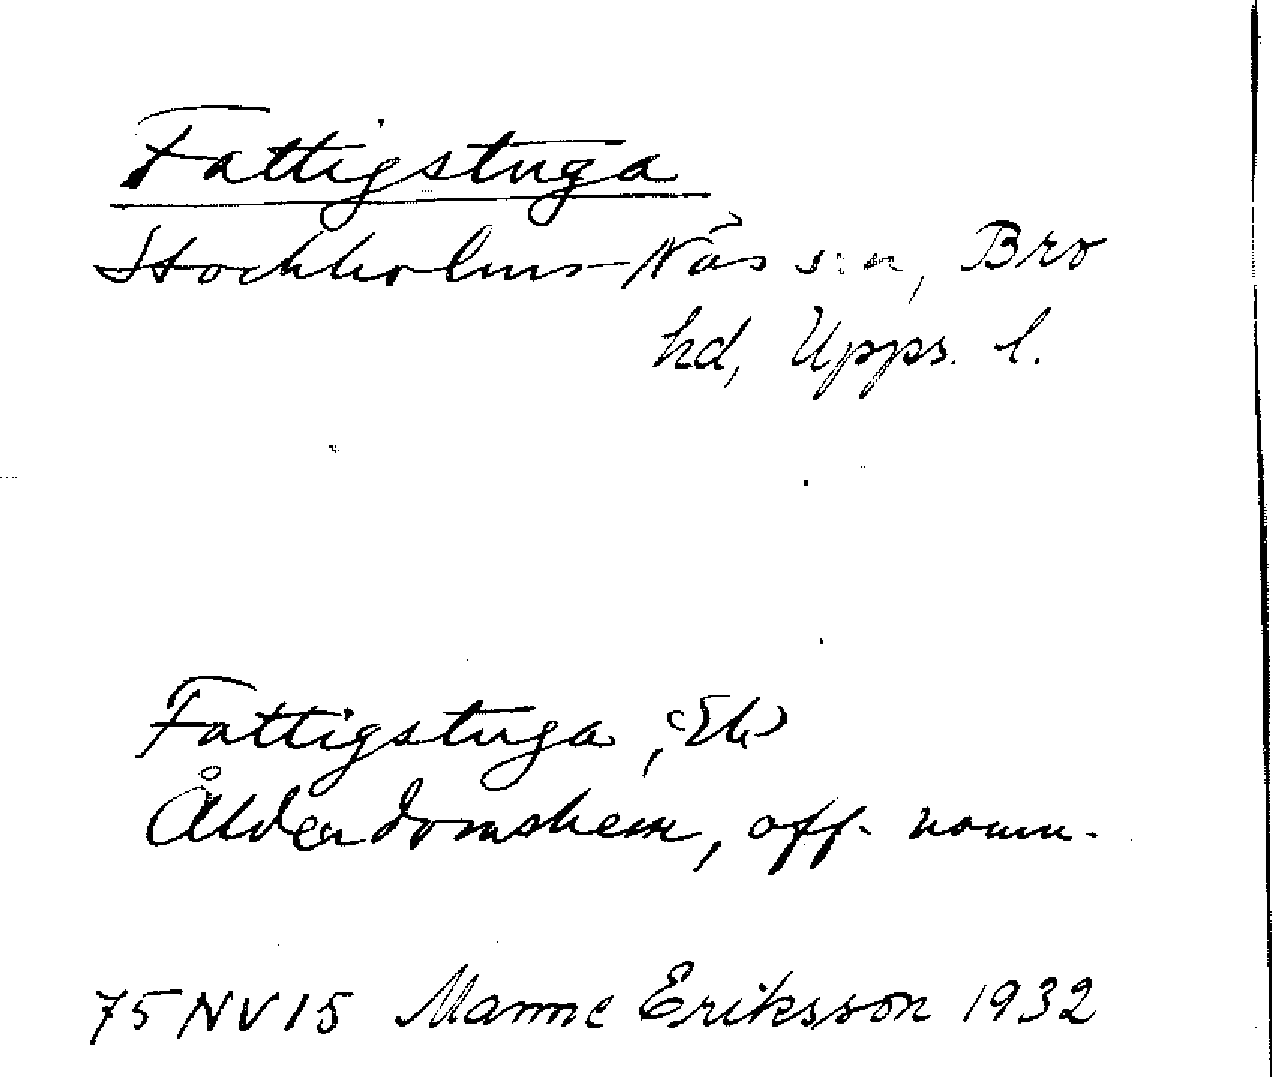 Fattigstuga
Stockholms-Näs s:n, Bro
hd, Upps. l.
Fattigstuga,
Ålderdomshem, off. namn.
75 NV 15 Manne Eriksson 1932